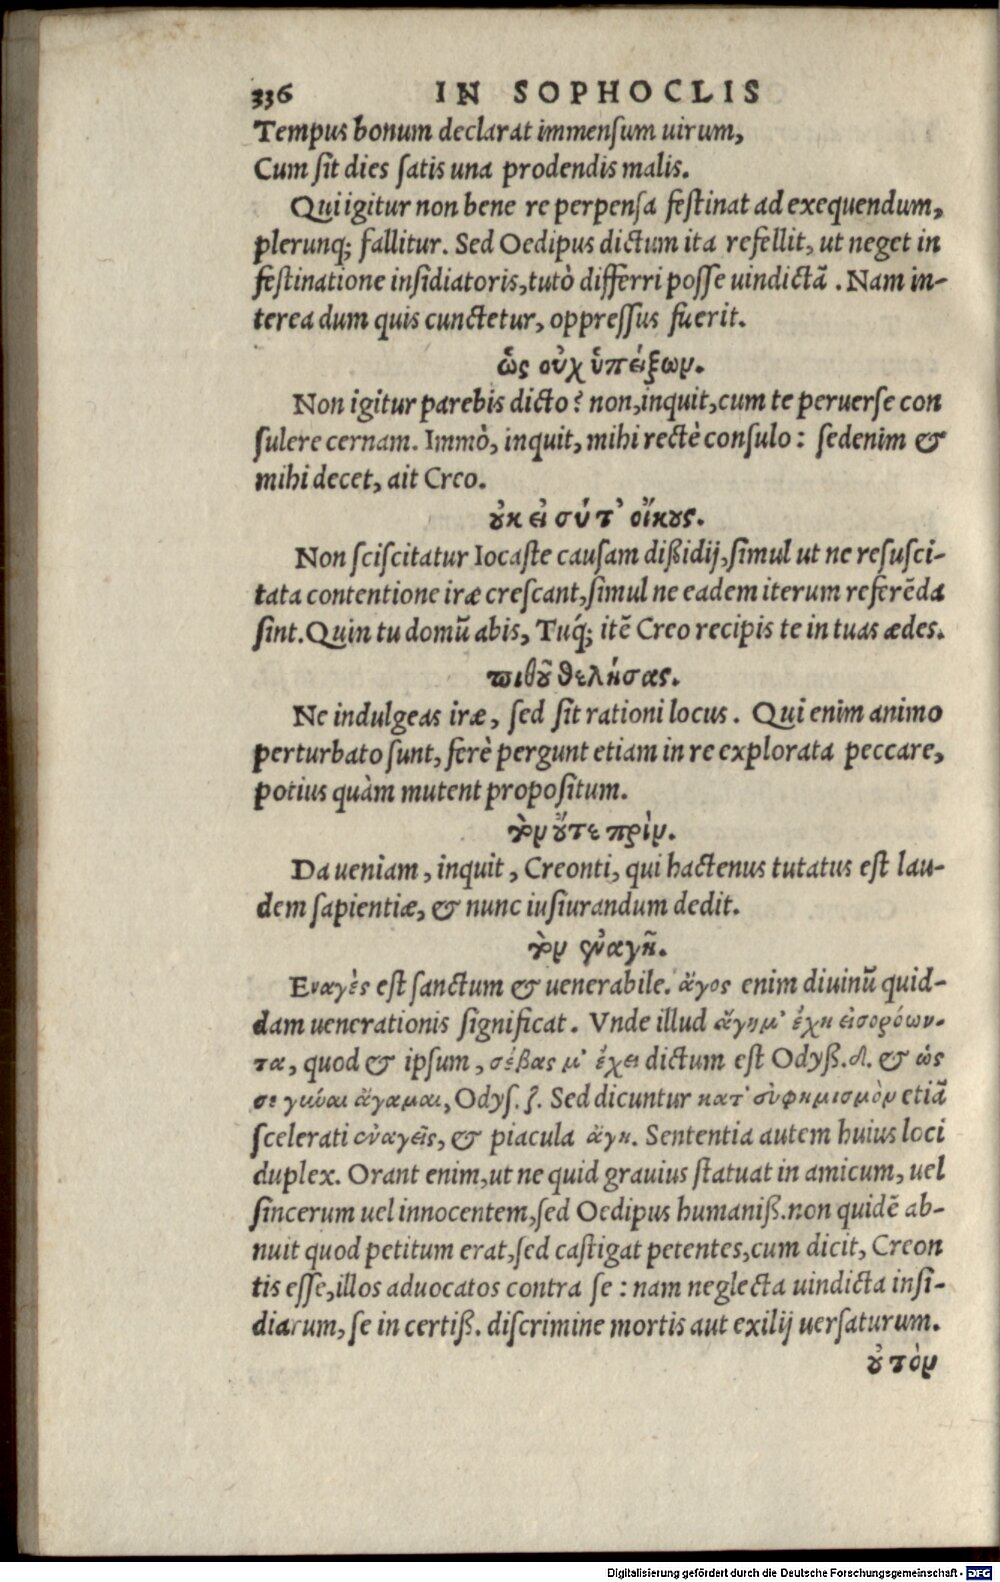 336 IN SOPHOCLIS
Tempus bonum declarat immensum uirum,
Cum ſit dies ſatis una prodendis malis.
Qui igitur non bene re perpenſa feſtinat ad exequendum,
plerunq; fallitur. Sed Oedipus dictum ita refellit, ut neget in
feſtinatione inſidiatoris, tutò differri poſſe uindictã . Nam in-
terea dum quis cunctetur, oppreſſus fuerit.
ὡς οὐχ ὑπείξων.
Non igitur parebis dicto? non, inquit, cum te peruerſe con
ſulere cernam. Immò, inquit, mihi rectè conſulo: ſedenim &
mihi decet, ait Creo.
ȣ̓κ εἶ σύ τ' οἴκȣς.
Non ſciſcitatur Iocaſte cauſam dißidij, ſimul ut ne reſuſci-
tata contentione iræ creſcant, ſimul ne eadem iterum referẽda
ſint. Quin tu domũ abis, Tuq́; itẽ Creo recipis te in tuas ædes.
πιθȣ͂ θελήσας.
Ne indulgeas iræ, ſed ſit rationi locus. Qui enim animo
perturbato ſunt, ferè pergunt etiam in re explorata peccare,
potius quàm mutent propoſitum.
τὸν ȣ̓́τε πρίν.
Da ueniam, inquit, Creonti, qui hactenus tutatus eſt lau-
dem ſapientiæ, & nunc iuſiurandum dedit.
τὸν ἐναγῆ.
Εναγὲς eſt ſanctum & uenerabile. ἄγος enim diuinũ quid-
dam uenerationis ſignificat. Vnde illud ἄγημ' ἔχη εἰσορόων-
τα, quod & ipſum, σέβας μ' ἔχει dictum eſt Odyß. δ. & ὡς
σε γύναι ἄγαμαι, Odyſ. ζ. Sed dicuntur κατ' εὐφημισμὸν etiã
ſcelerati ἐναγεῖς, & piacula ἄγη. Sententia autem huius loci
duplex. Orant enim, ut ne quid grauius ſtatuat in amicum, uel
ſincerum uel innocentem, ſed Oedipus humaniß. non quidẽ ab-
nuit quod petitum erat, ſed caſtigat petentes, cum dicit, Creon
tis eſſe, illos aduocatos contra ſe: nam neglecta uindicta inſi-
diarum, ſe in certiß. diſcrimine mortis aut exilij uerſaturum.
ȣ̓ τὸν
Digitalisierung gefördert durch die Deutsche Forschungsgemeinschaft - DFG